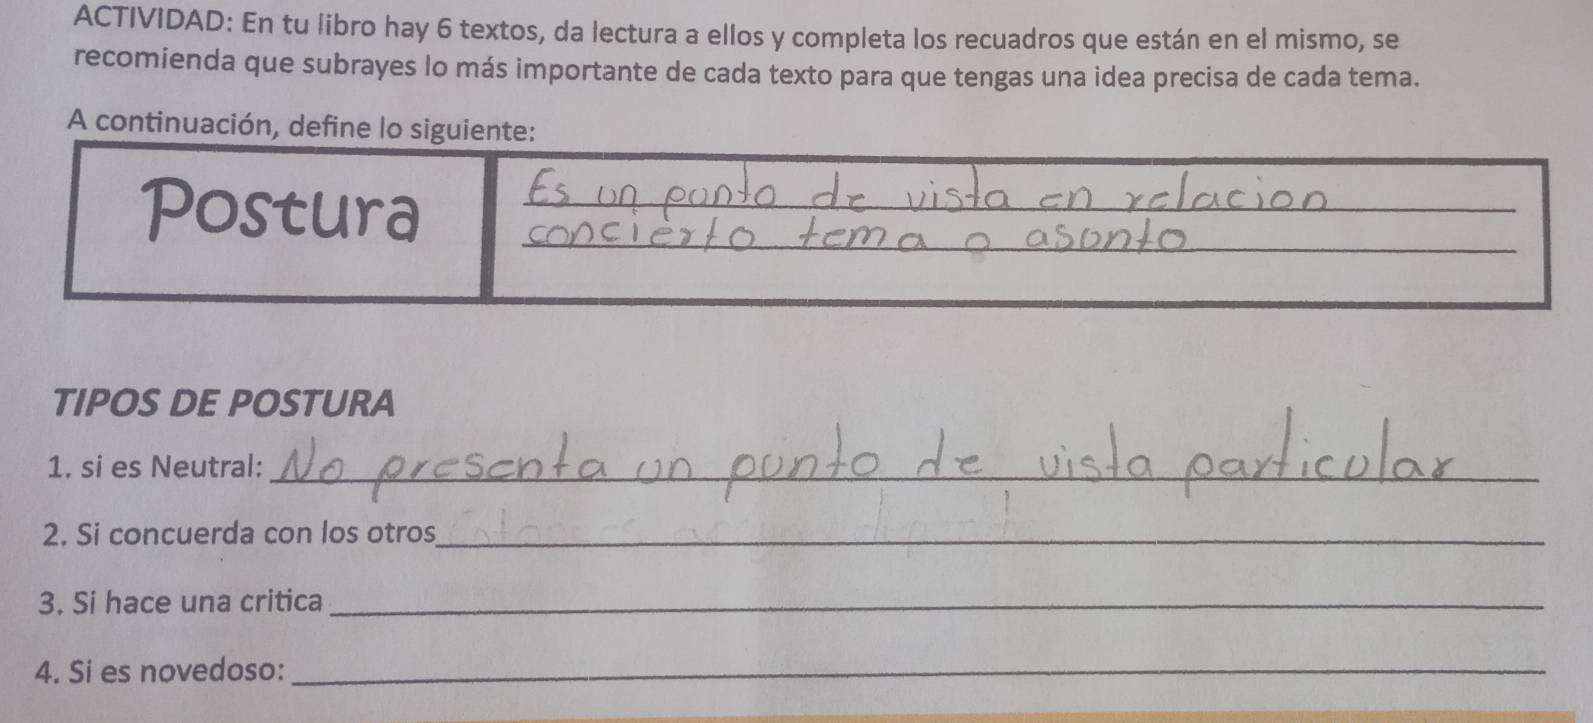 ACTIVIDAD: En tu libro hay 6 textos, da lectura a ellos y completa los recuadros que están en el mismo, se
recomienda que subrayes lo más importante de cada texto para que tengas una idea precisa de cada tema.
A continuación, define lo siguiente:
Postura
Es un punto de vista en relacion
concierto tema o asunto
TIPOS DE POSTURA
1. si es Neutral: No presenta un punto de vista particular
2. Si concuerda con los otros
3. Si hace una critica
4. Si es novedoso: